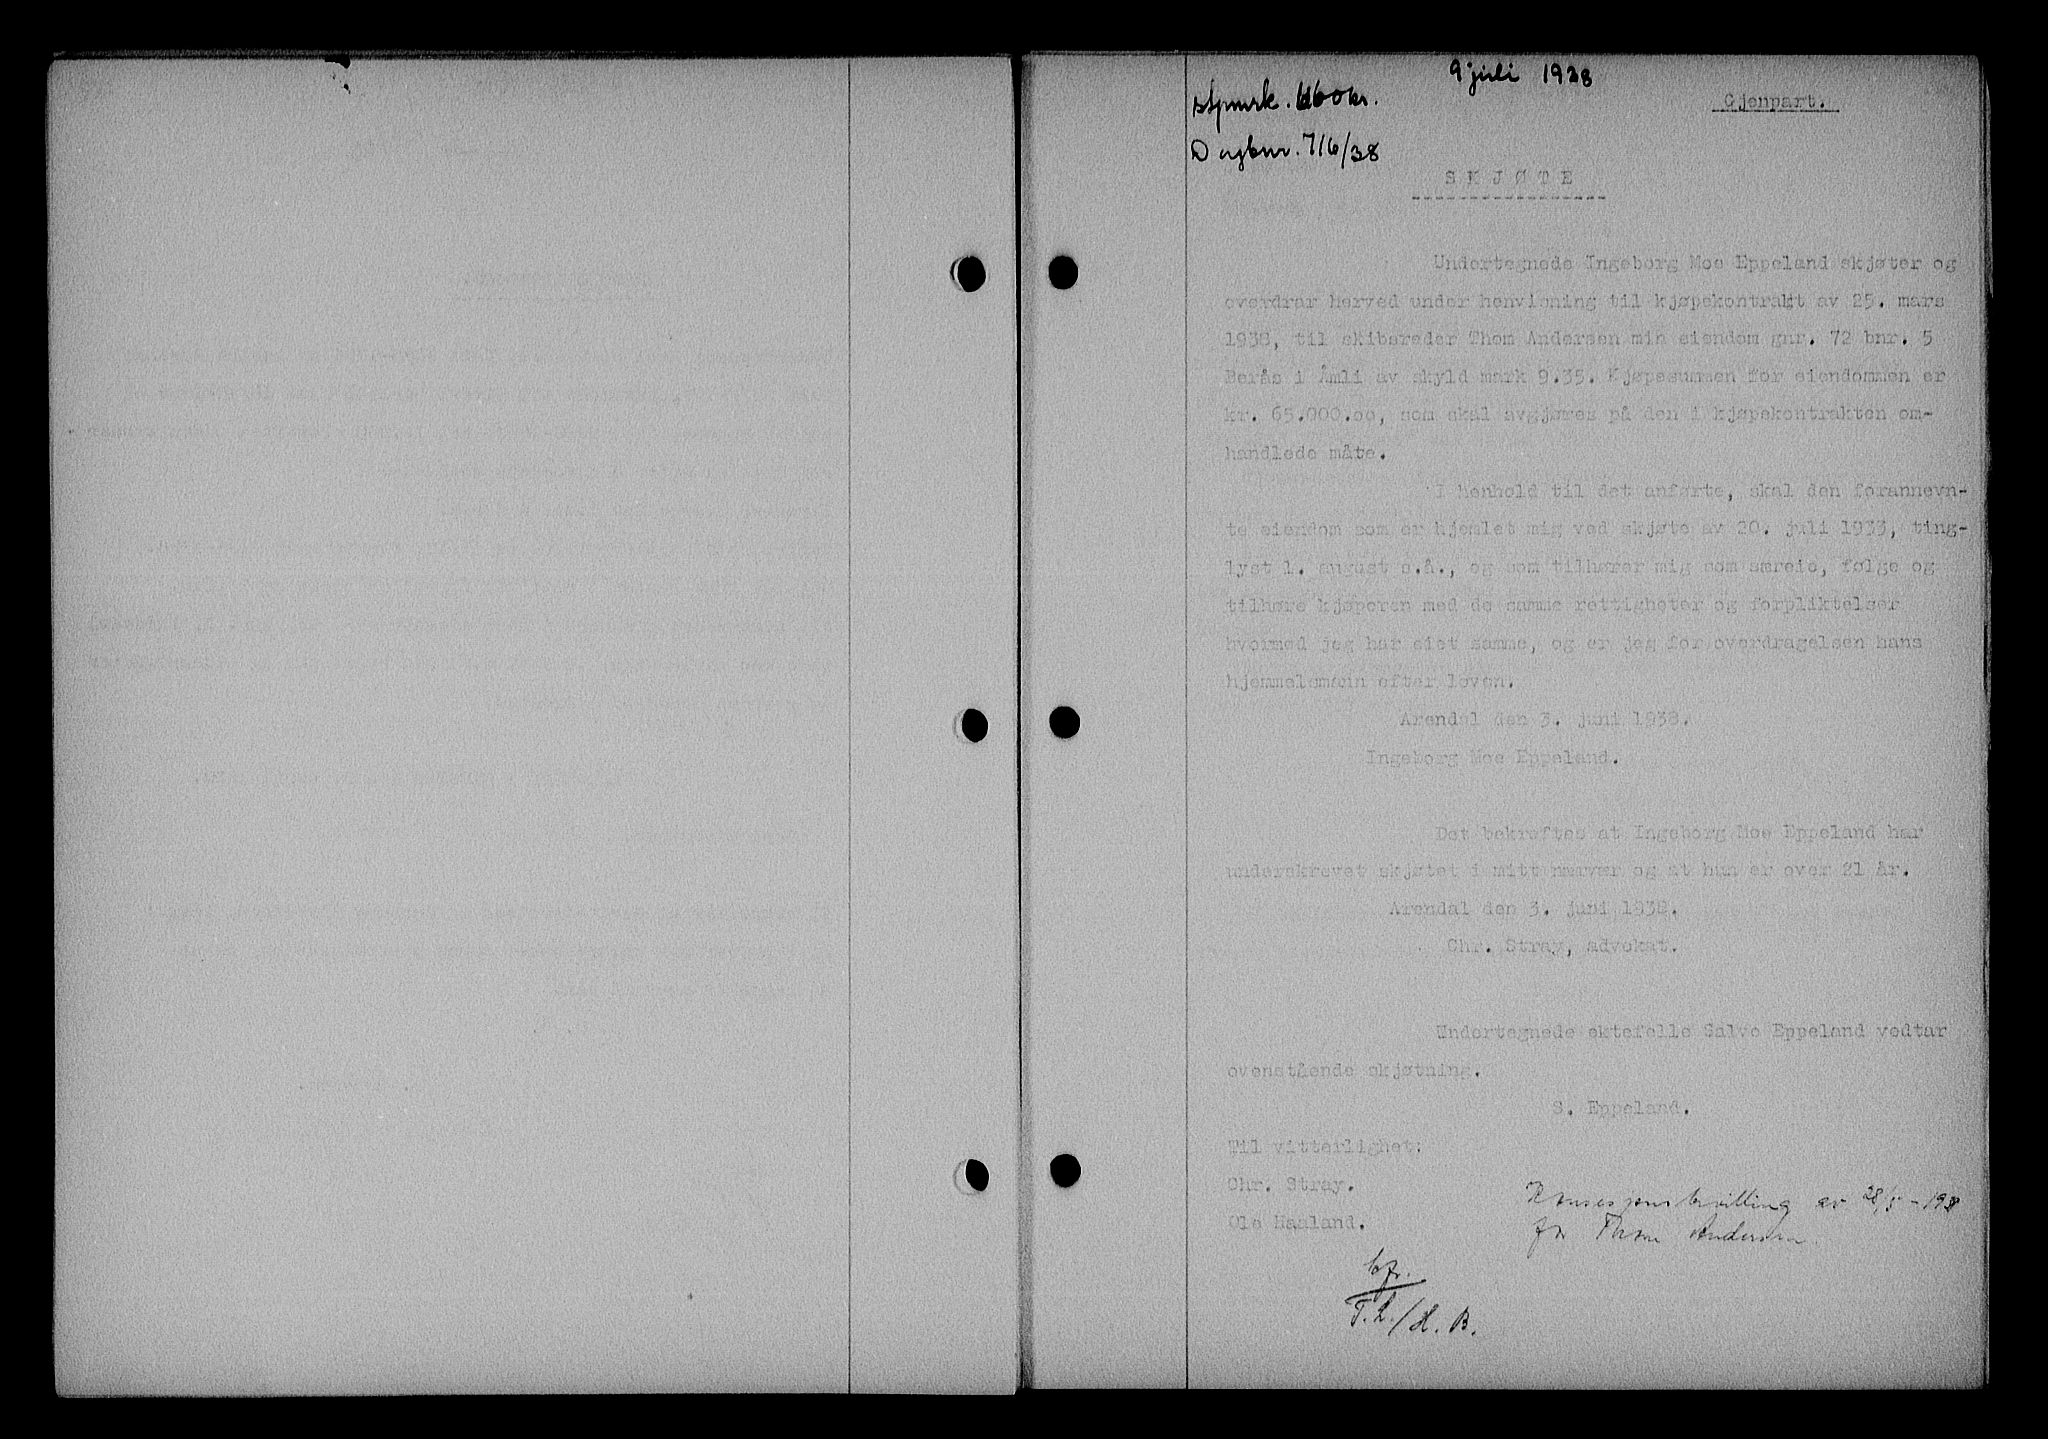 9 juli 1938
Gjenpart.
stpmrk. 660 kr.
Dagbnr. 716/38
SKJØTE
Undertegnede Ingeborg Moe Eppeland skjøter og
overdrar herved under henvisning til kjøpekontrakt av 25. mars
1938, til skibsreder Thom Andersen min eiendom gnr. 72 bnr. 5
Berås i Åmli av skyld mark 9.35. Kjøpesummen for eiendommen er
kr. 65.000.oo, som skal avgjøres på den i kjøpekontrakten om-
handlede måte.
I henhold til det anførte, skal den forannevn-
te eiendom som er hjemlet mig ved skjøte av 20. juli 1933, ting-
lyst 1. august s.å., og som tilhører mig som særeie, følge og
tilhøre kjøperen med de samme rettigheter og forpliktelser
hvormed jeg har eiet samme, og er jeg for overdragelsen hans
hjemmelsmann efter loven.
Arendal den 3. juni 1938.
Ingeborg Moe Eppeland.
Det bekreftes at Ingeborg Moe Eppeland har
underskrevet skjøtet i mitt nærvær og at hun er over 21 år.
Arendal den 3. juni 1938.
Chr. Stray, advokat.
Undertegnede ektefelle Salve Eppeland vedtar
ovenstående skjøtning.
S. Eppeland.
Til vitterlighet:
Chr. Stray.
Ole Haaland.
Konsesjonsbevilling av 28/5-1938
for Thom Andersen.
bfr.
T.L./H.B.